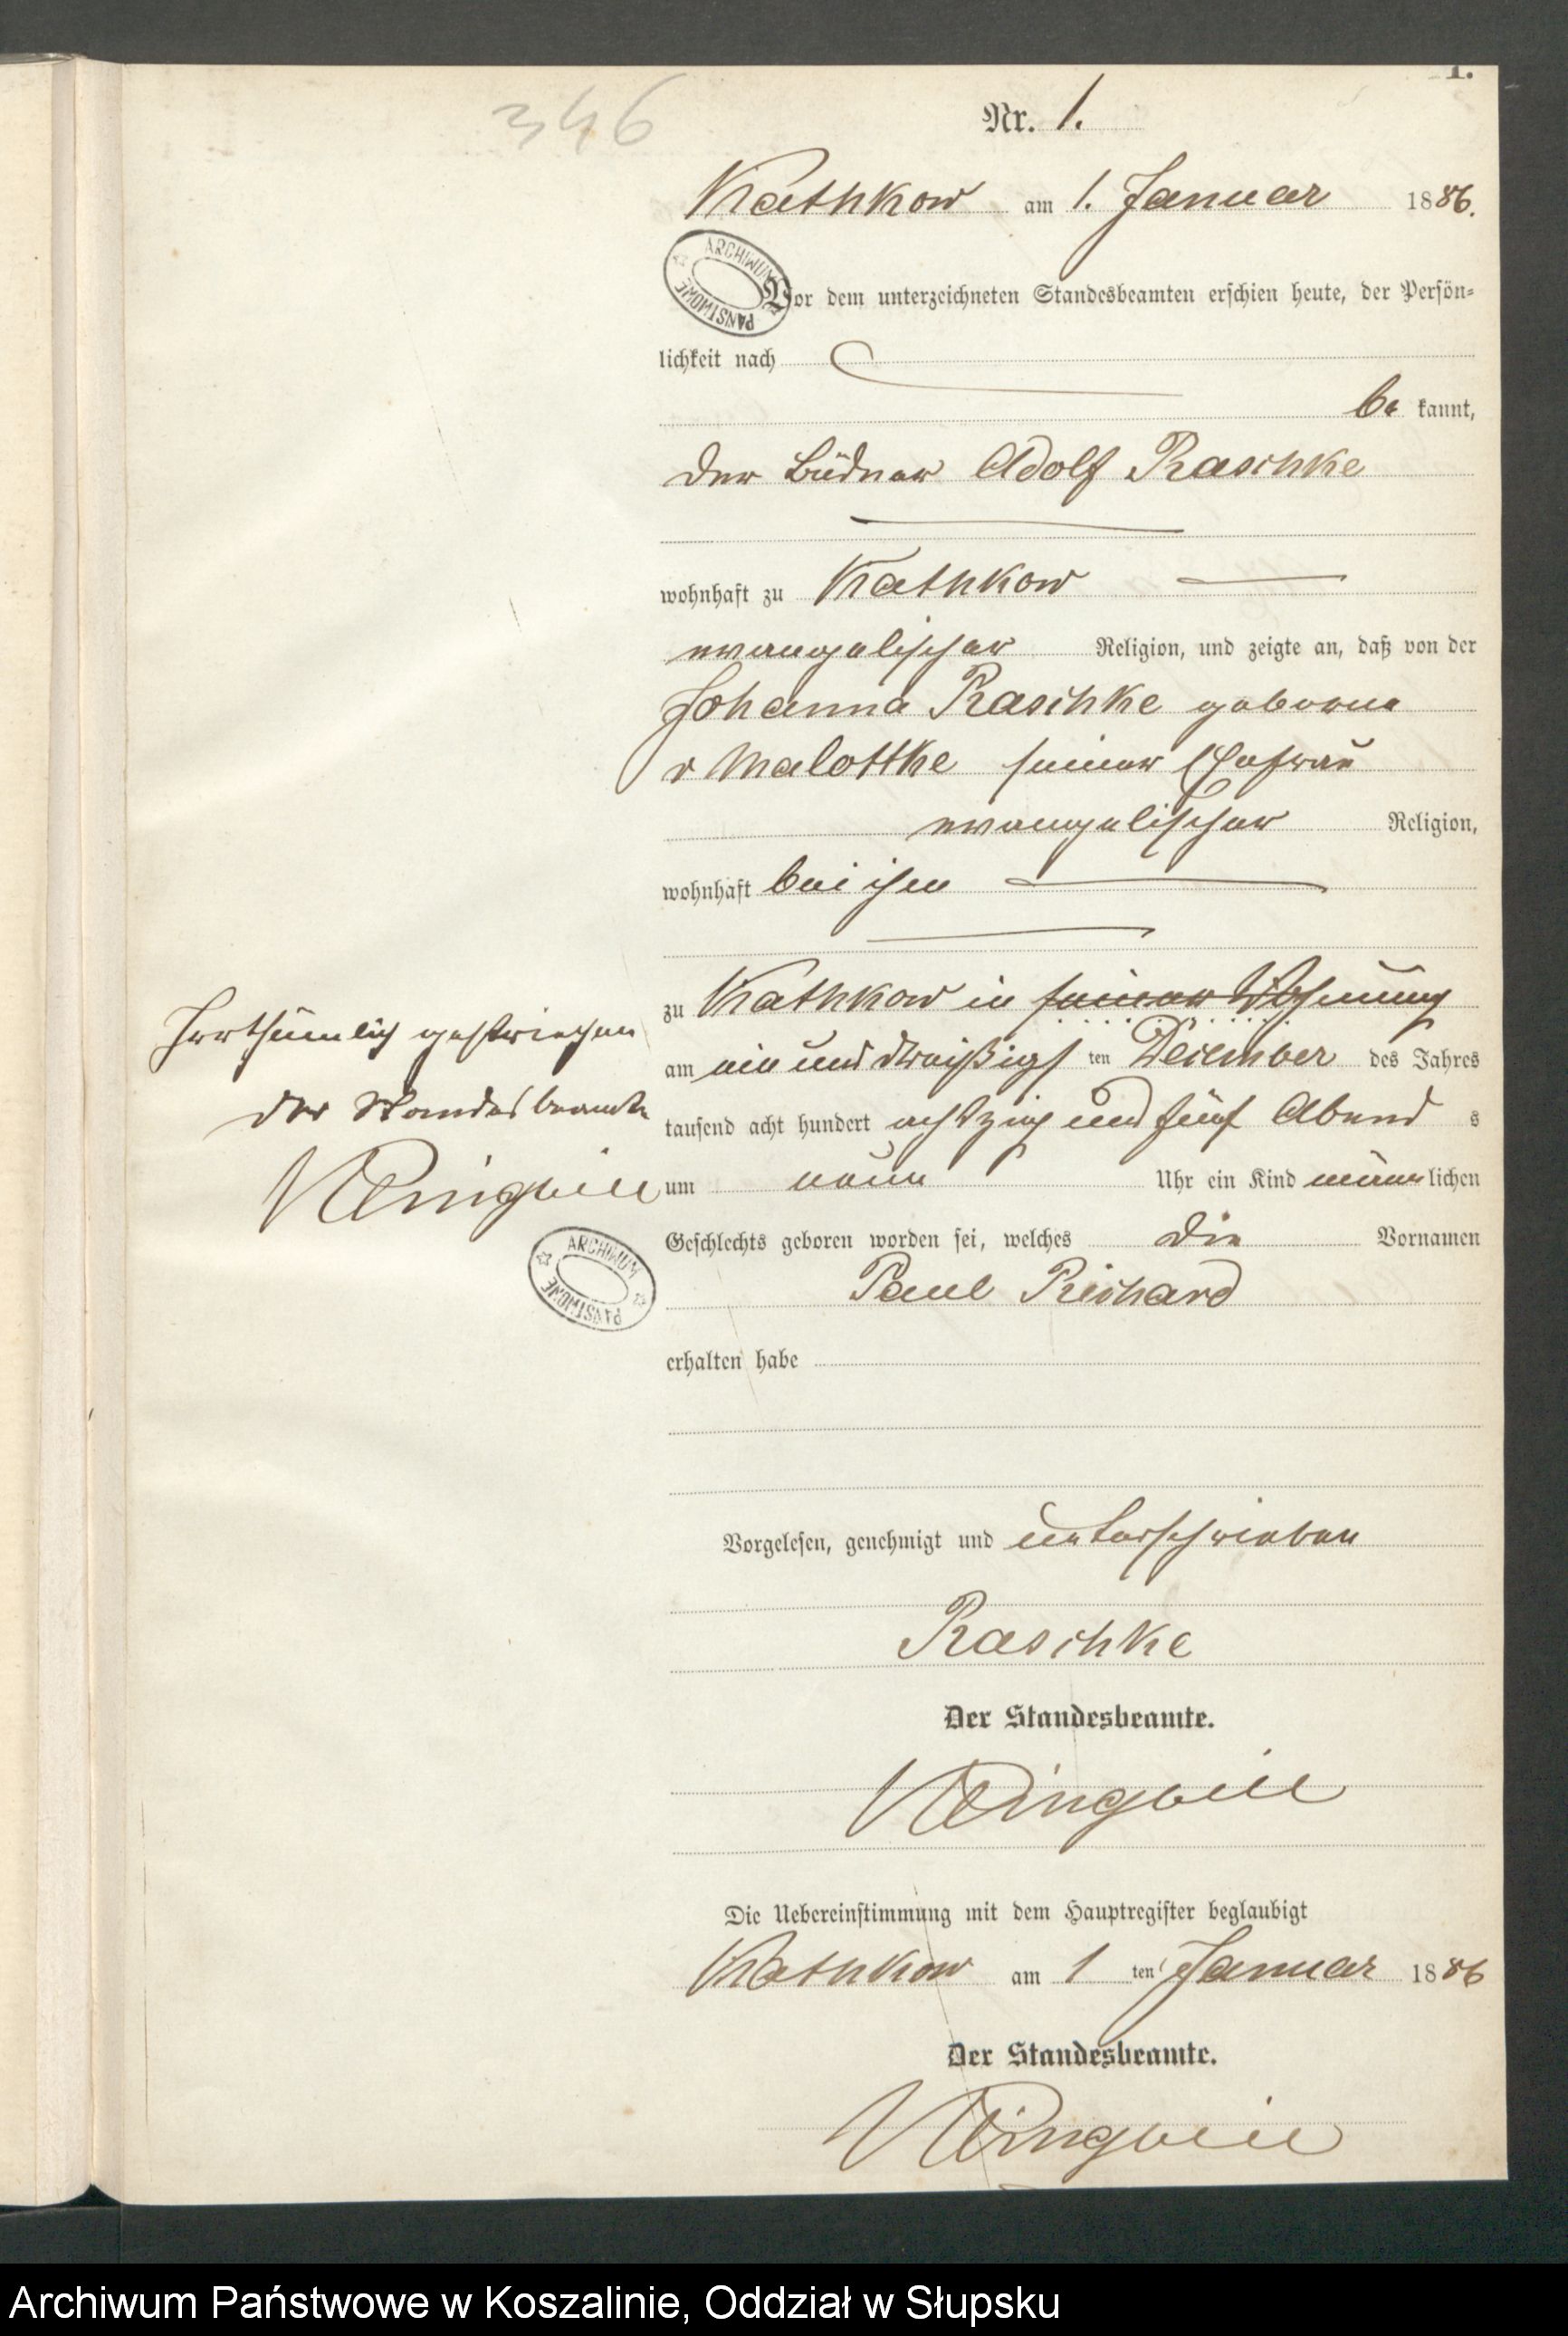 1.
346
Nr. 1.
Kathkow am 1. Januar 1886.
ARCHIWUM PAŃSTWOWE
Vor dem unterzeichneten Standesbeamten erschien heute, der Persön-
lichkeit nach
be kannt,
der Büdner Adolf Raschke
wohnhaft zu Kathkow
evangelischer Religion, und zeigte an, daß von der
Johanna Raschke geborne
v Malottke seiner Ehefrau
evangelischer Religion,
wohnhaft bei ihm
zu Kathkow in seiner Wohnung
am ein und dreißigs ten December des Jahres
tausend acht hundert achtzig und fünf Abend s
um neun Uhr ein Kind männ lichen
Geschlechts geboren worden sei, welches die Vornamen
Paul Richard
erhalten habe
Irrthümlich gestrichen
der Standesbeamte
ARCHIWUM PAŃSTWOWE
Vorgelesen, genehmigt und unterschrieben
Raschke
Der Standesbeamte.
Die Uebereinstimmung mit dem Hauptregister beglaubigt
Kathkow am 1 ten Januar 1886
Der Standesbeamte.
Archiwum Państwowe w Koszalinie, Oddział w Słupsku